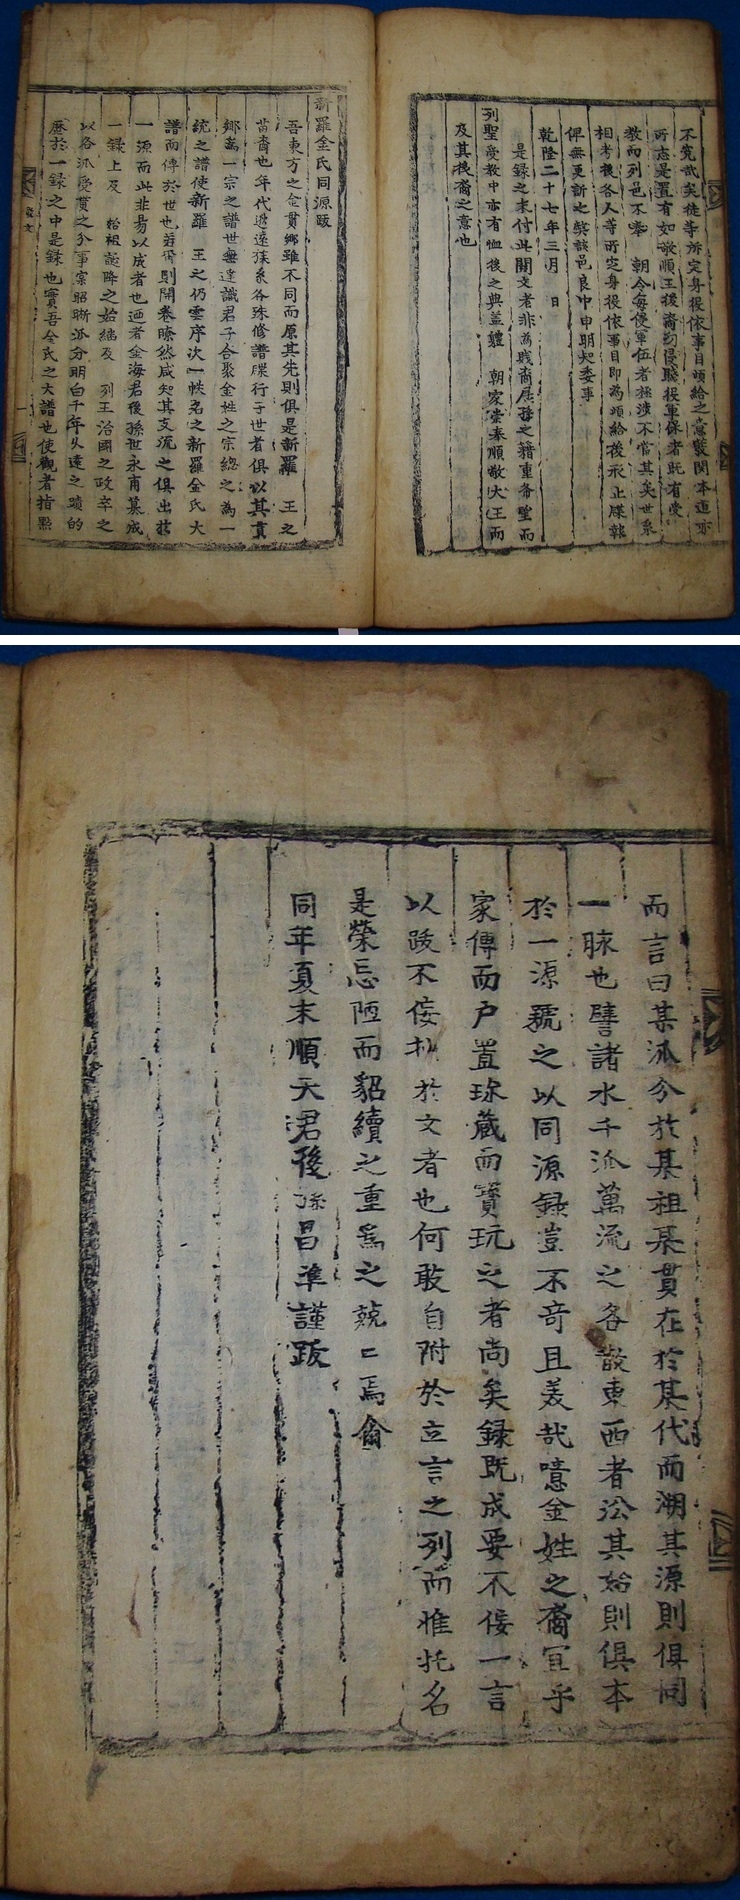 不冤哉矣徒等所定身役依事目頉給之意發関本道亦
所志是置有如敬順王後裔勿侵賤役軍保者既有受
教而列邑不奉 朝令每侵軍伍者極涉不當其矣世系
相考後各人等所定身役依事目即為頉給後永止牒報
俾無更訴之弊該邑良中申明知委事
乾隆二十七年三月 日
是錄之末付此関文者非為賤裔孱孫之藉重希望而
列聖受教中亦有恤後之典盖軆 朝家崇奉順敬大王而
及其後裔之意也
新羅金氏同源跋
吾東方之金貫鄉雖不同而原其先則俱是新羅 王之
苗裔也年代遐遠孫系各殊修譜牒行于世者俱以其貫
鄉為一宗之譜世無達識君子合聚金姓之宗総之為一
統之譜使新羅 王之仍雲序次一帙名之新羅金氏大
譜而傳於世也若爾則開卷瞭然咸知其支流之俱出於
一源而此非易以成者也迺者金海君後孫世永甫纂成
一錄上及 始祖誕降之始継及 列王治國之政卒之
以各派受貫之分事宗昭晰派分明白千年久遠之蹟的
歷於一録之中是錄也實吾金氏之大譜也使觀者指點
而言曰某派分於某祖某貫在於某代而溯其源則俱同
一脉也譬諸水千派萬流之各散東西者㳂其始則俱本
於一源號之以同源錄豈不奇且美哉噫金姓之裔宜乎
家傳而户置珍藏而寶玩之者尚矣録既成要不佞一言
以跋不佞朴於文者也何敢自附於立言之列而惟托名
是榮忘陋而貂續之重爲之兢〻焉龠
同年夏末順天君後孫昌準謹跋